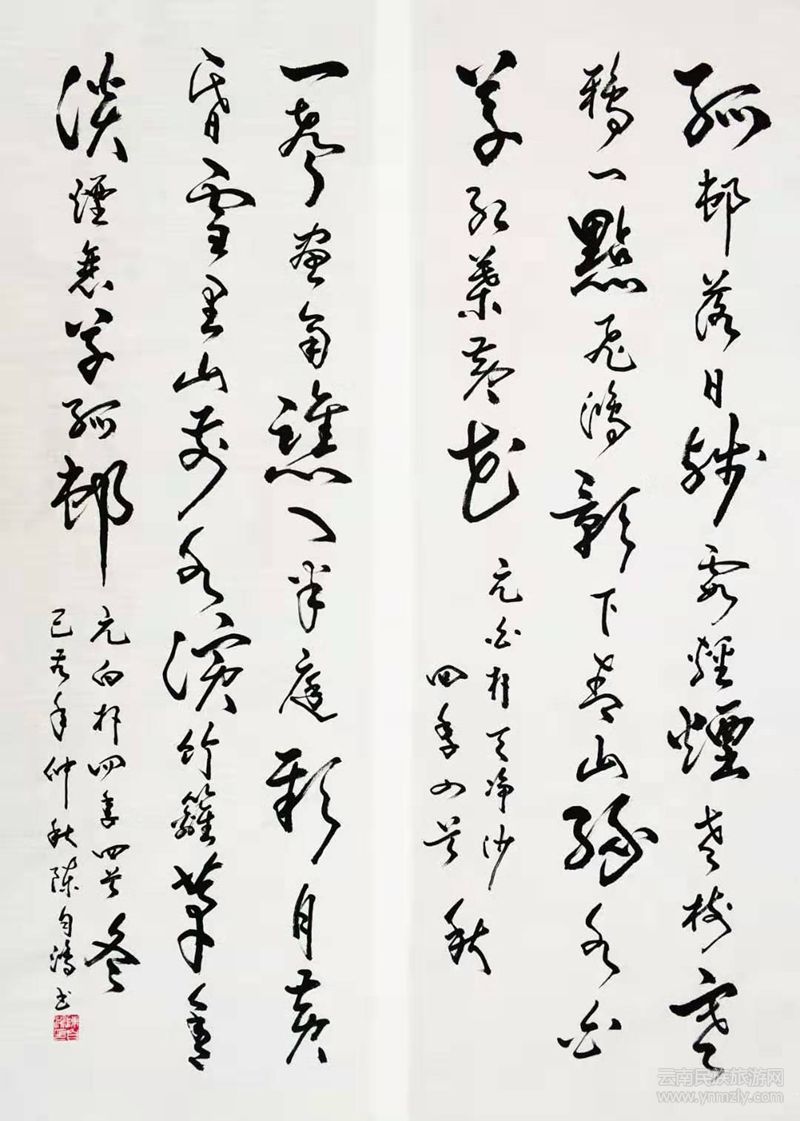 孤邨落日殘霞輕煙老樹寒
鴉一點飛鴻影下青山綠水白
草紅葉黃花
元白朴天净沙
四季四首 秋
一聲畫角譙門半庭新月黃
昏雪里山前水濱竹籬茅舍
淡煙衰草孤邨
元白朴四季四首 冬
己亥年仲秋陳自鴻书
云南民族旅游网
www.ynmzly.com